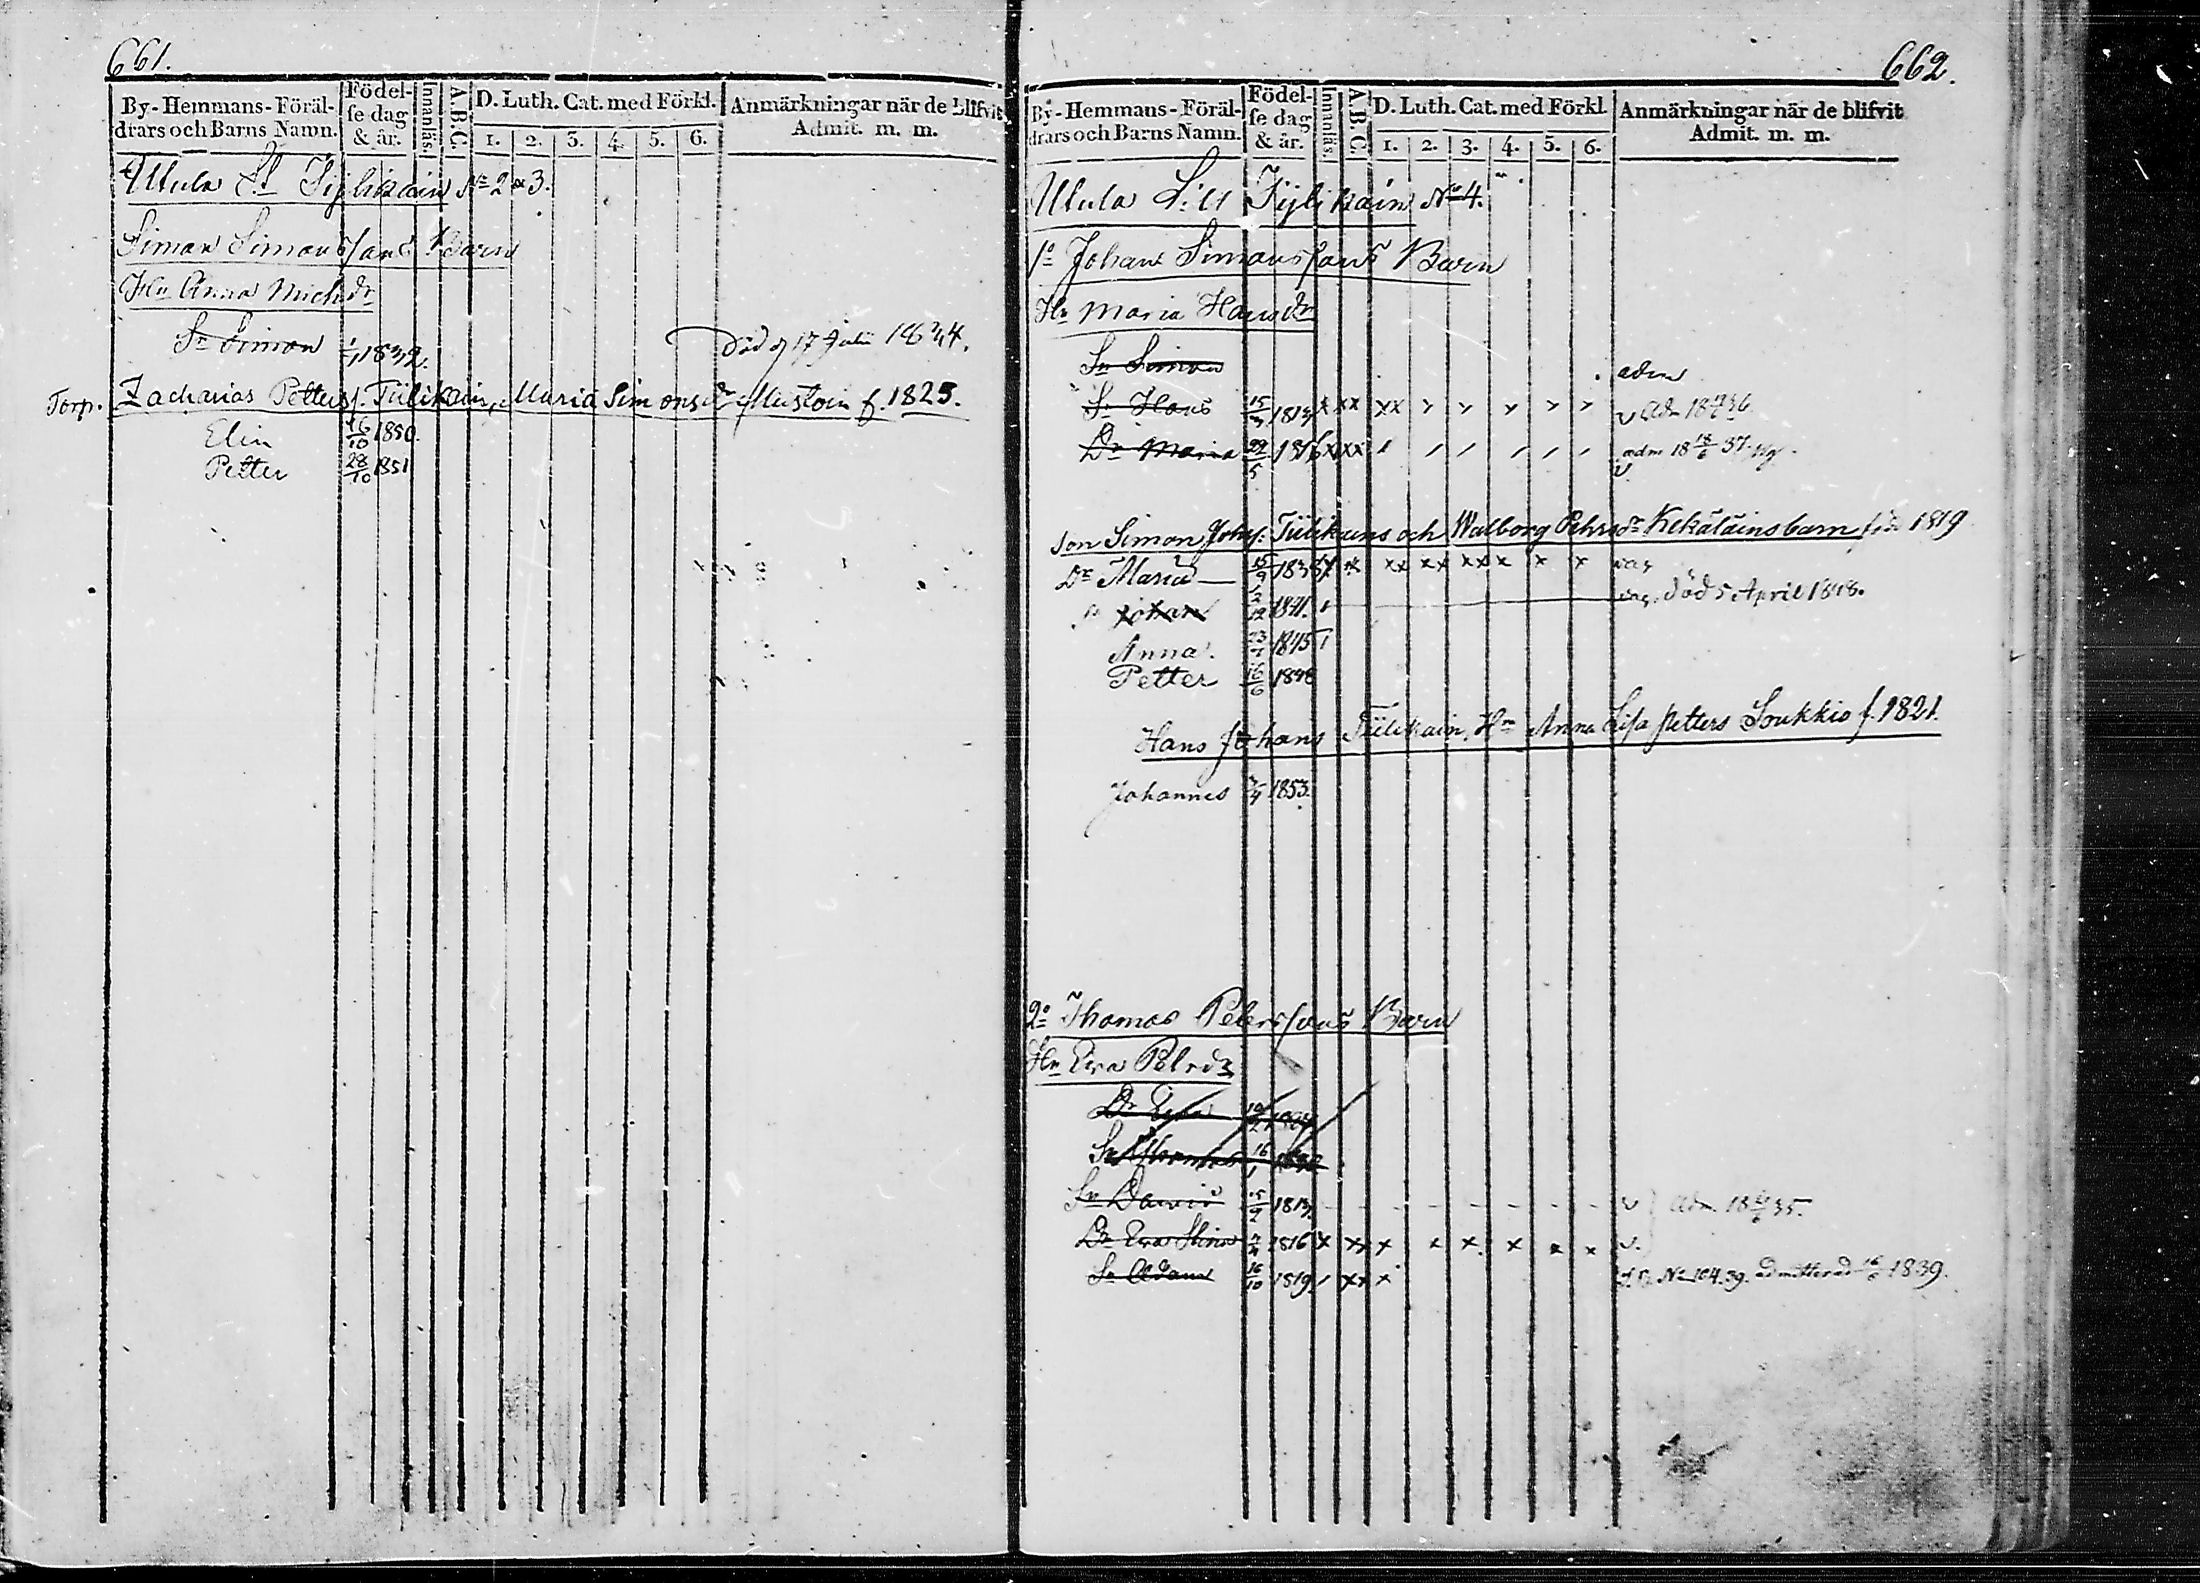 661.
By-Hemmans-Föräl-
drars och Barns Namn.
Födel-
se dag
& år.
Innanläs.
A.B.C.
D. Luth. Cat. med Förkl.
1. 2. 3. 4. 5. 6.
Anmärkningar när de blifvit
Admit. m. m.
Utula St Tijlikäin No 2 & 3.
Simon Simonssons Barn
Hu Anna Michsdr
Sn Simon 1832. död d 17 Julii 1834.
Torp. Zacharias Petters. Tiilikain, Maria Simonsdr Mustoin f. 1825.
Elin 16/10 1850.
Petter 28/10 1851
662.
By-Hemmans-Föräl-
drars och Barns Namn.
Födel-
se dag
& år.
Innanläs.
A.B.C.
D. Luth. Cat. med Förkl.
1. 2. 3. 4. 5. 6.
Anmärkningar när de blifvit
Admit. m. m.
Utula Lill Tijlikäin No 4.
1o Johan Simonssons Barn
Hu Maria Hansdr
Sn Simon adm
Sn Hans 15/3 1813 x xx xx v adm
Dr Maria 29/5 1816 x xx adm 18 18/6 37.
son Simon Johs: Tiilikains och Walborg Pehrsdr Kekäläins barn född 1819
Dr Maria 15/9 1838 x x xx xx xx x x x
Sn Johan 1841. död 5 April 1848.
Anna 1845
Petter 16/6 1848
Hans Johans Tiilikain, Hu Anna Lisa Petters Soukkio f. 1821.
Johannes 1853.
2o Thomas Peterssons Barn
Hu Eva Petrdr
Dr Eva
Sn Thomas 16/1
Sn David 15/2 1813. v adm. 35.
Dr Eva Stina 1816 x xx x x x x x x v.
Sn Adam 16/10 1819 xx x No 104.39. admitterad 1839.